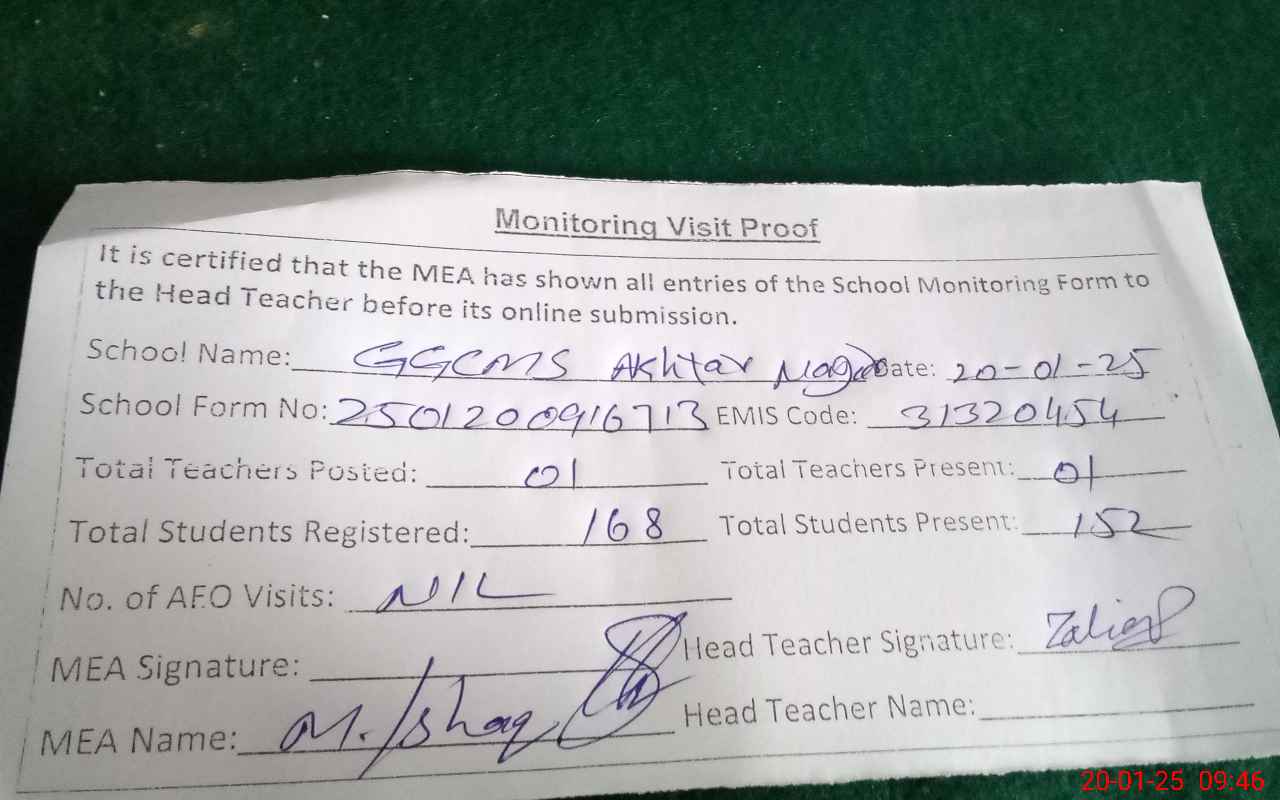 Monitoring Visit Proof
It is certified that the MEA has shown all entries of the School Monitoring Form to
the Head Teacher before its online submission.
School Name: GGCMS Akhtar Nagar Date: 20-01-25
School Form No: 2501200916713 EMIS Code: 31320454
Total Teachers Posted: 01 Total Teachers Present: 01
Total Students Registered: 168 Total Students Present: 152
No. of AEO Visits: NIL
MEA Signature: Head Teacher Signature:
MEA Name: M. Ishaq Head Teacher Name:
20-01-25 09:46